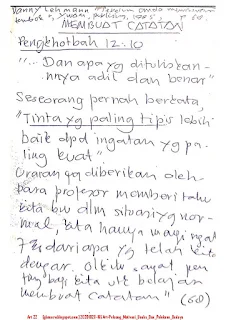 Danny Lehmann "Sebelum anda
tembok", Yuwa,
MEMBUAT CATATAN
Pengkhotbah 12:10
"... Dan apa yg ditulikan-
nnya adil dan benar"
Seseorang pernah berkata,
"Tinta yg paling tipis lebih
baik dpd ingatan yg pa-
ling kuat".
Uraian yg diberikan oleh
para profesor memberi tahu
kita bw dlm situasi yg nor-
mal, kita hanya mengingat
7% dari apa yg telah kita
dengar. Oltk itu sangat pen
ting bagi kita utk belajar
membuat catatan" (68)